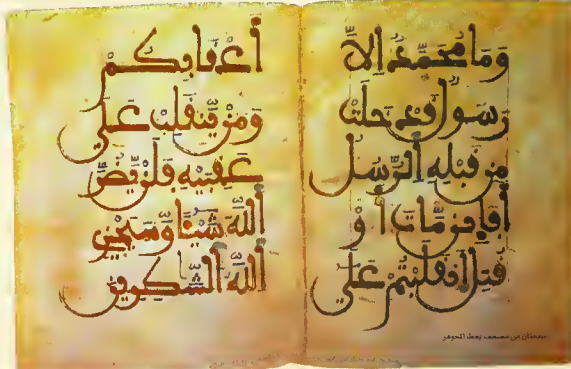 وَمَا مُحَمَّدٌ اِلاَّ
رَسُولٌ قَدْ خَلَتْ
مِن قَبْلِهِ اِ۬لرُّسُلُ
أَفَإِيْن مَّاتَ أَوْ
قُتِلَ اَ۪نقَلَبْتُمْ عَلَىٰ
أَعْقَابِكُمْ
وَمَنْ يَّنقَلِبْ عَلَىٰ
عَقِبَيْهِ فَلَنْ يَّضُرَّ
اَ۬للَّهَ شَيْـٔاً وَسَيَجْزِے
اِ۬للَّهُ اُ۬لشَّٰكِرِينَ
صفحتان من مصحف بخط المجوهر